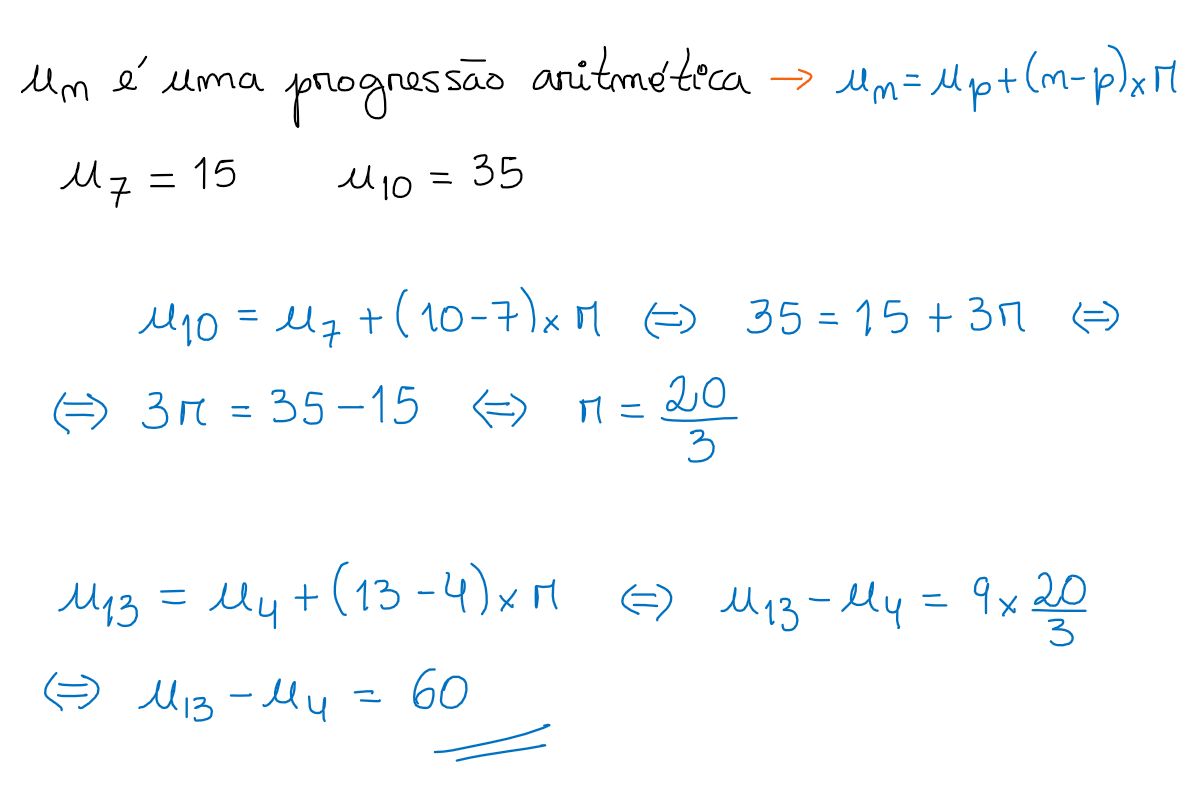 uₙ é uma progressão aritmética → uₙ = uₚ + (n-p) × r
u₇ = 15 u₁₀ = 35
u₁₀ = u₇ + (10-7) × r ⇔ 35 = 15 + 3r ⇔
⇔ 3r = 35 - 15 ⇔ r = 20/3
u₁₃ = u₄ + (13-4) × r ⇔ u₁₃ - u₄ = 9 × 20/3
⇔ u₁₃ - u₄ = 60